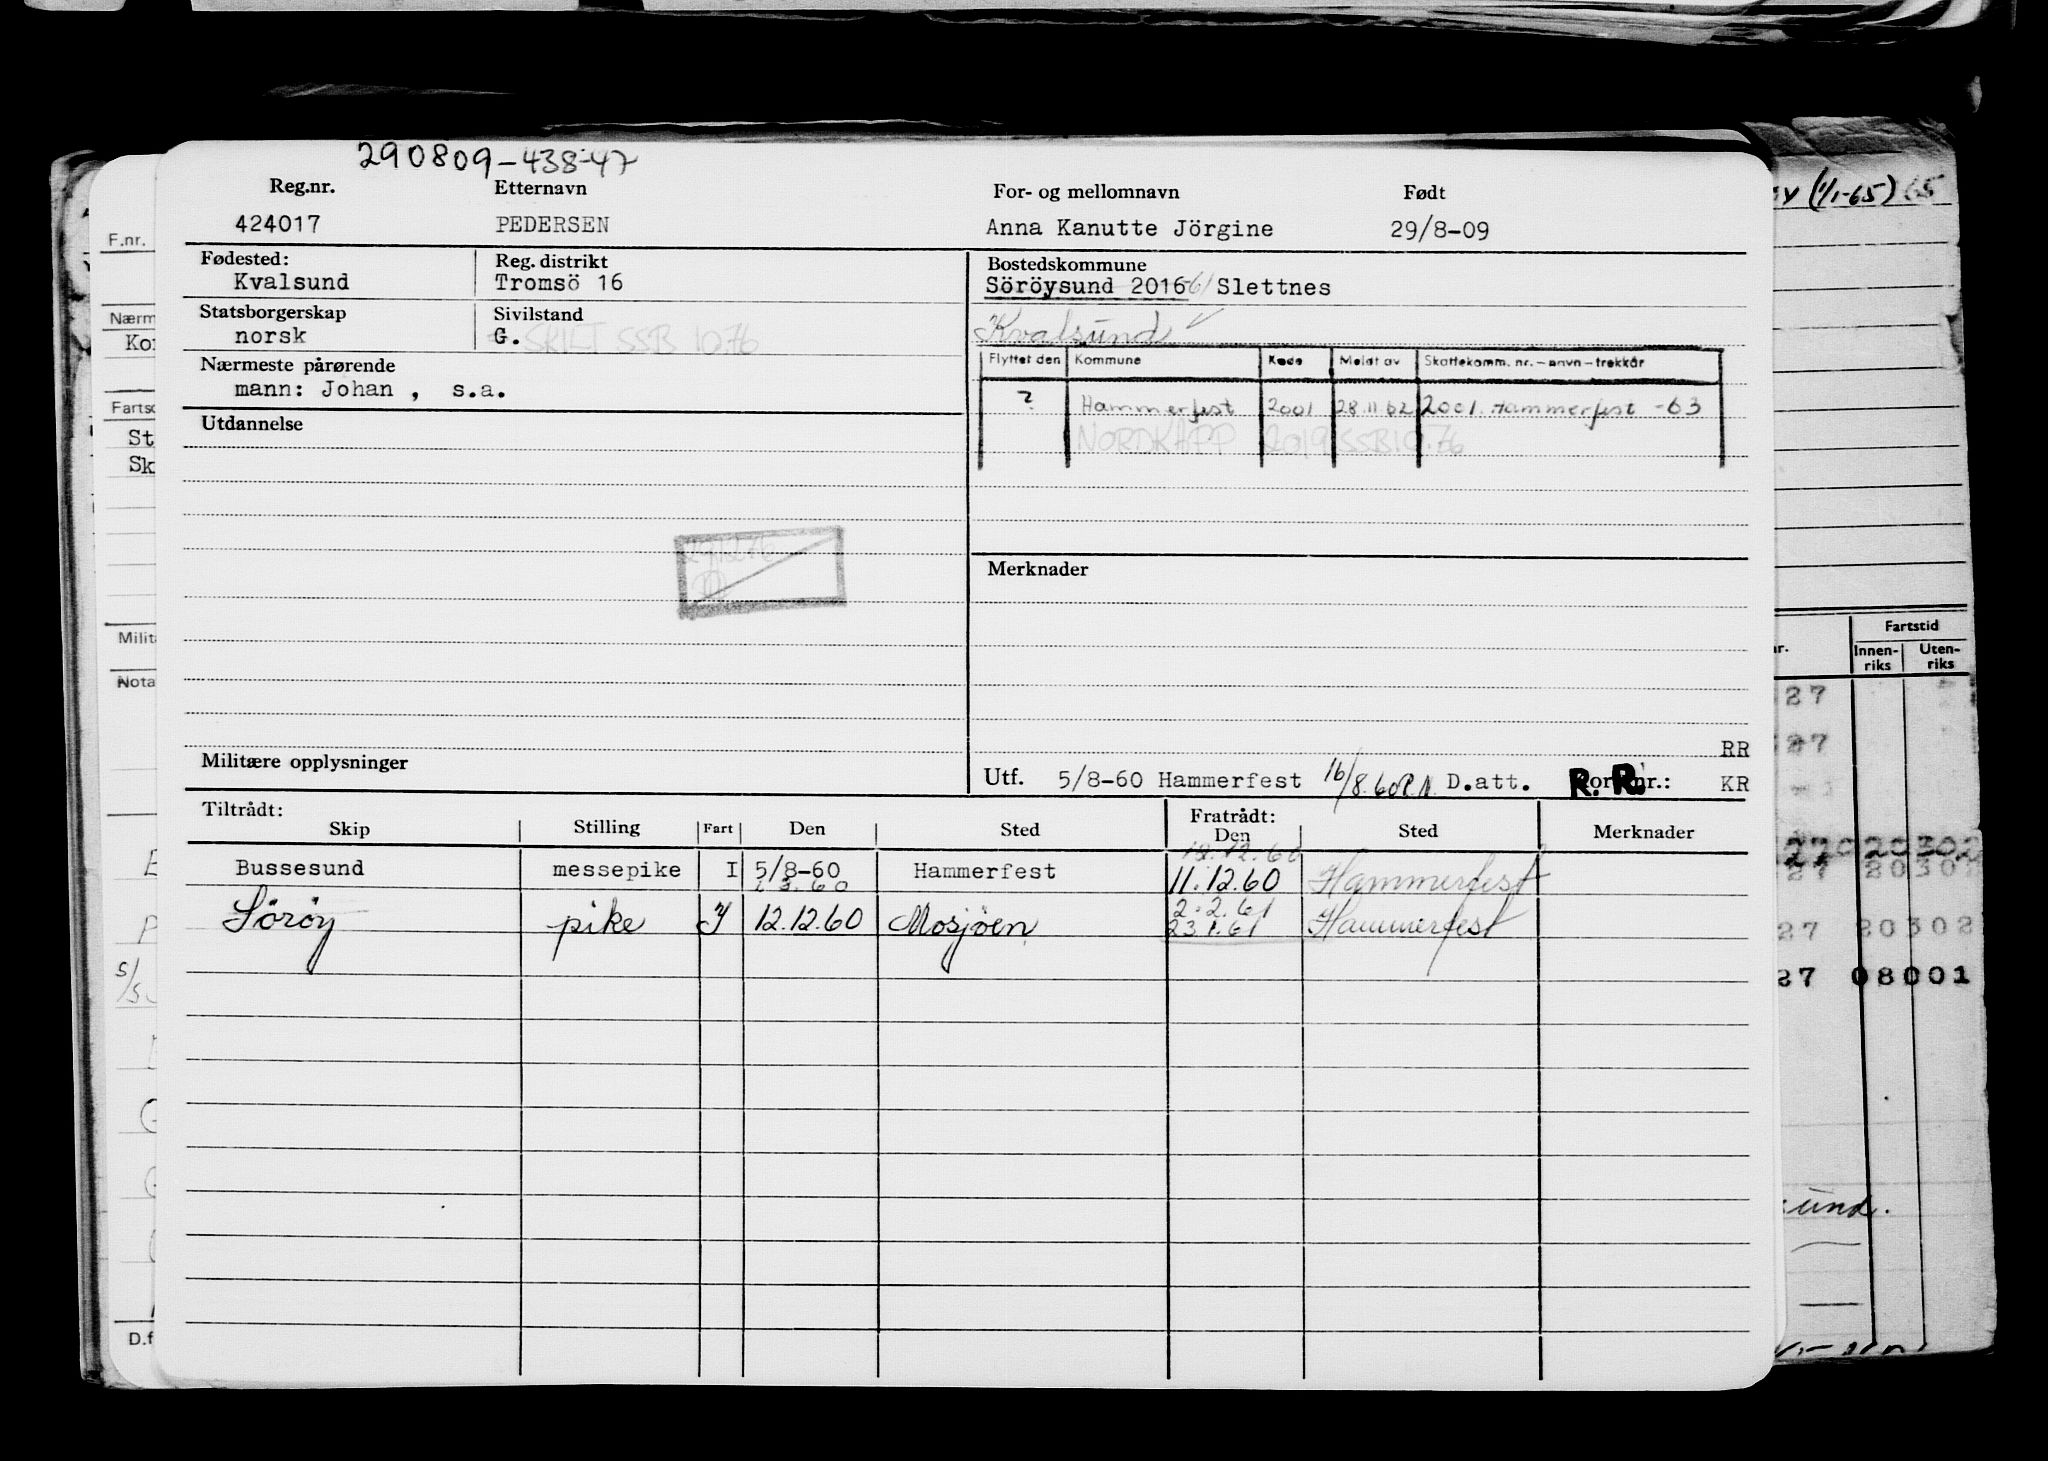 290809-438-47
Reg.nr. Etternavn For- og mellomnavn Født
424017 PEDERSEN Anna Kanutte Jörgine 29/8-09
Fødested: Reg. distrikt Bostedskommune
Kvalsund Tromsö 16 Söröysund 2016-61 Slettnes
Statsborgerskap Sivilstand
norsk G. SKILT SSB 10.76 Kvalsund
Nærmeste pårørende
mann: Johan , s.a.
Flyttet den Kommune Kode Meldt av Skattekomm. nr. – navn – trekkår
? Hammerfest 2001 28.11.62 2001. Hammerfest -63
NORDKAPP 2019 SSB 10.76
Utdannelse
29.12.76
Merknader
RR
Militære opplysninger
Utf. 5/8-60 Hammerfest 16/8.60 D.att. R.R. nr.: KR
Tiltrådt: Fratrådt:
Skip Stilling Fart Den Sted Den Sted Merknader
12.60
Bussesund messepike I 5/8-60 Hammerfest 11.12.60 Hammerfest
2.2.61
Söröy pike I 12.12.60 Mosjöen 23.1.61 Hammerfest
F.nr.
Nærm
Kor
Fartso
St
Sk
Milit
Nota
D.f
(1/1-65) 65
Fartstid
nr. Innen-riks Uten-riks
27
27
27 20302
27 20302
27 08001
sund.